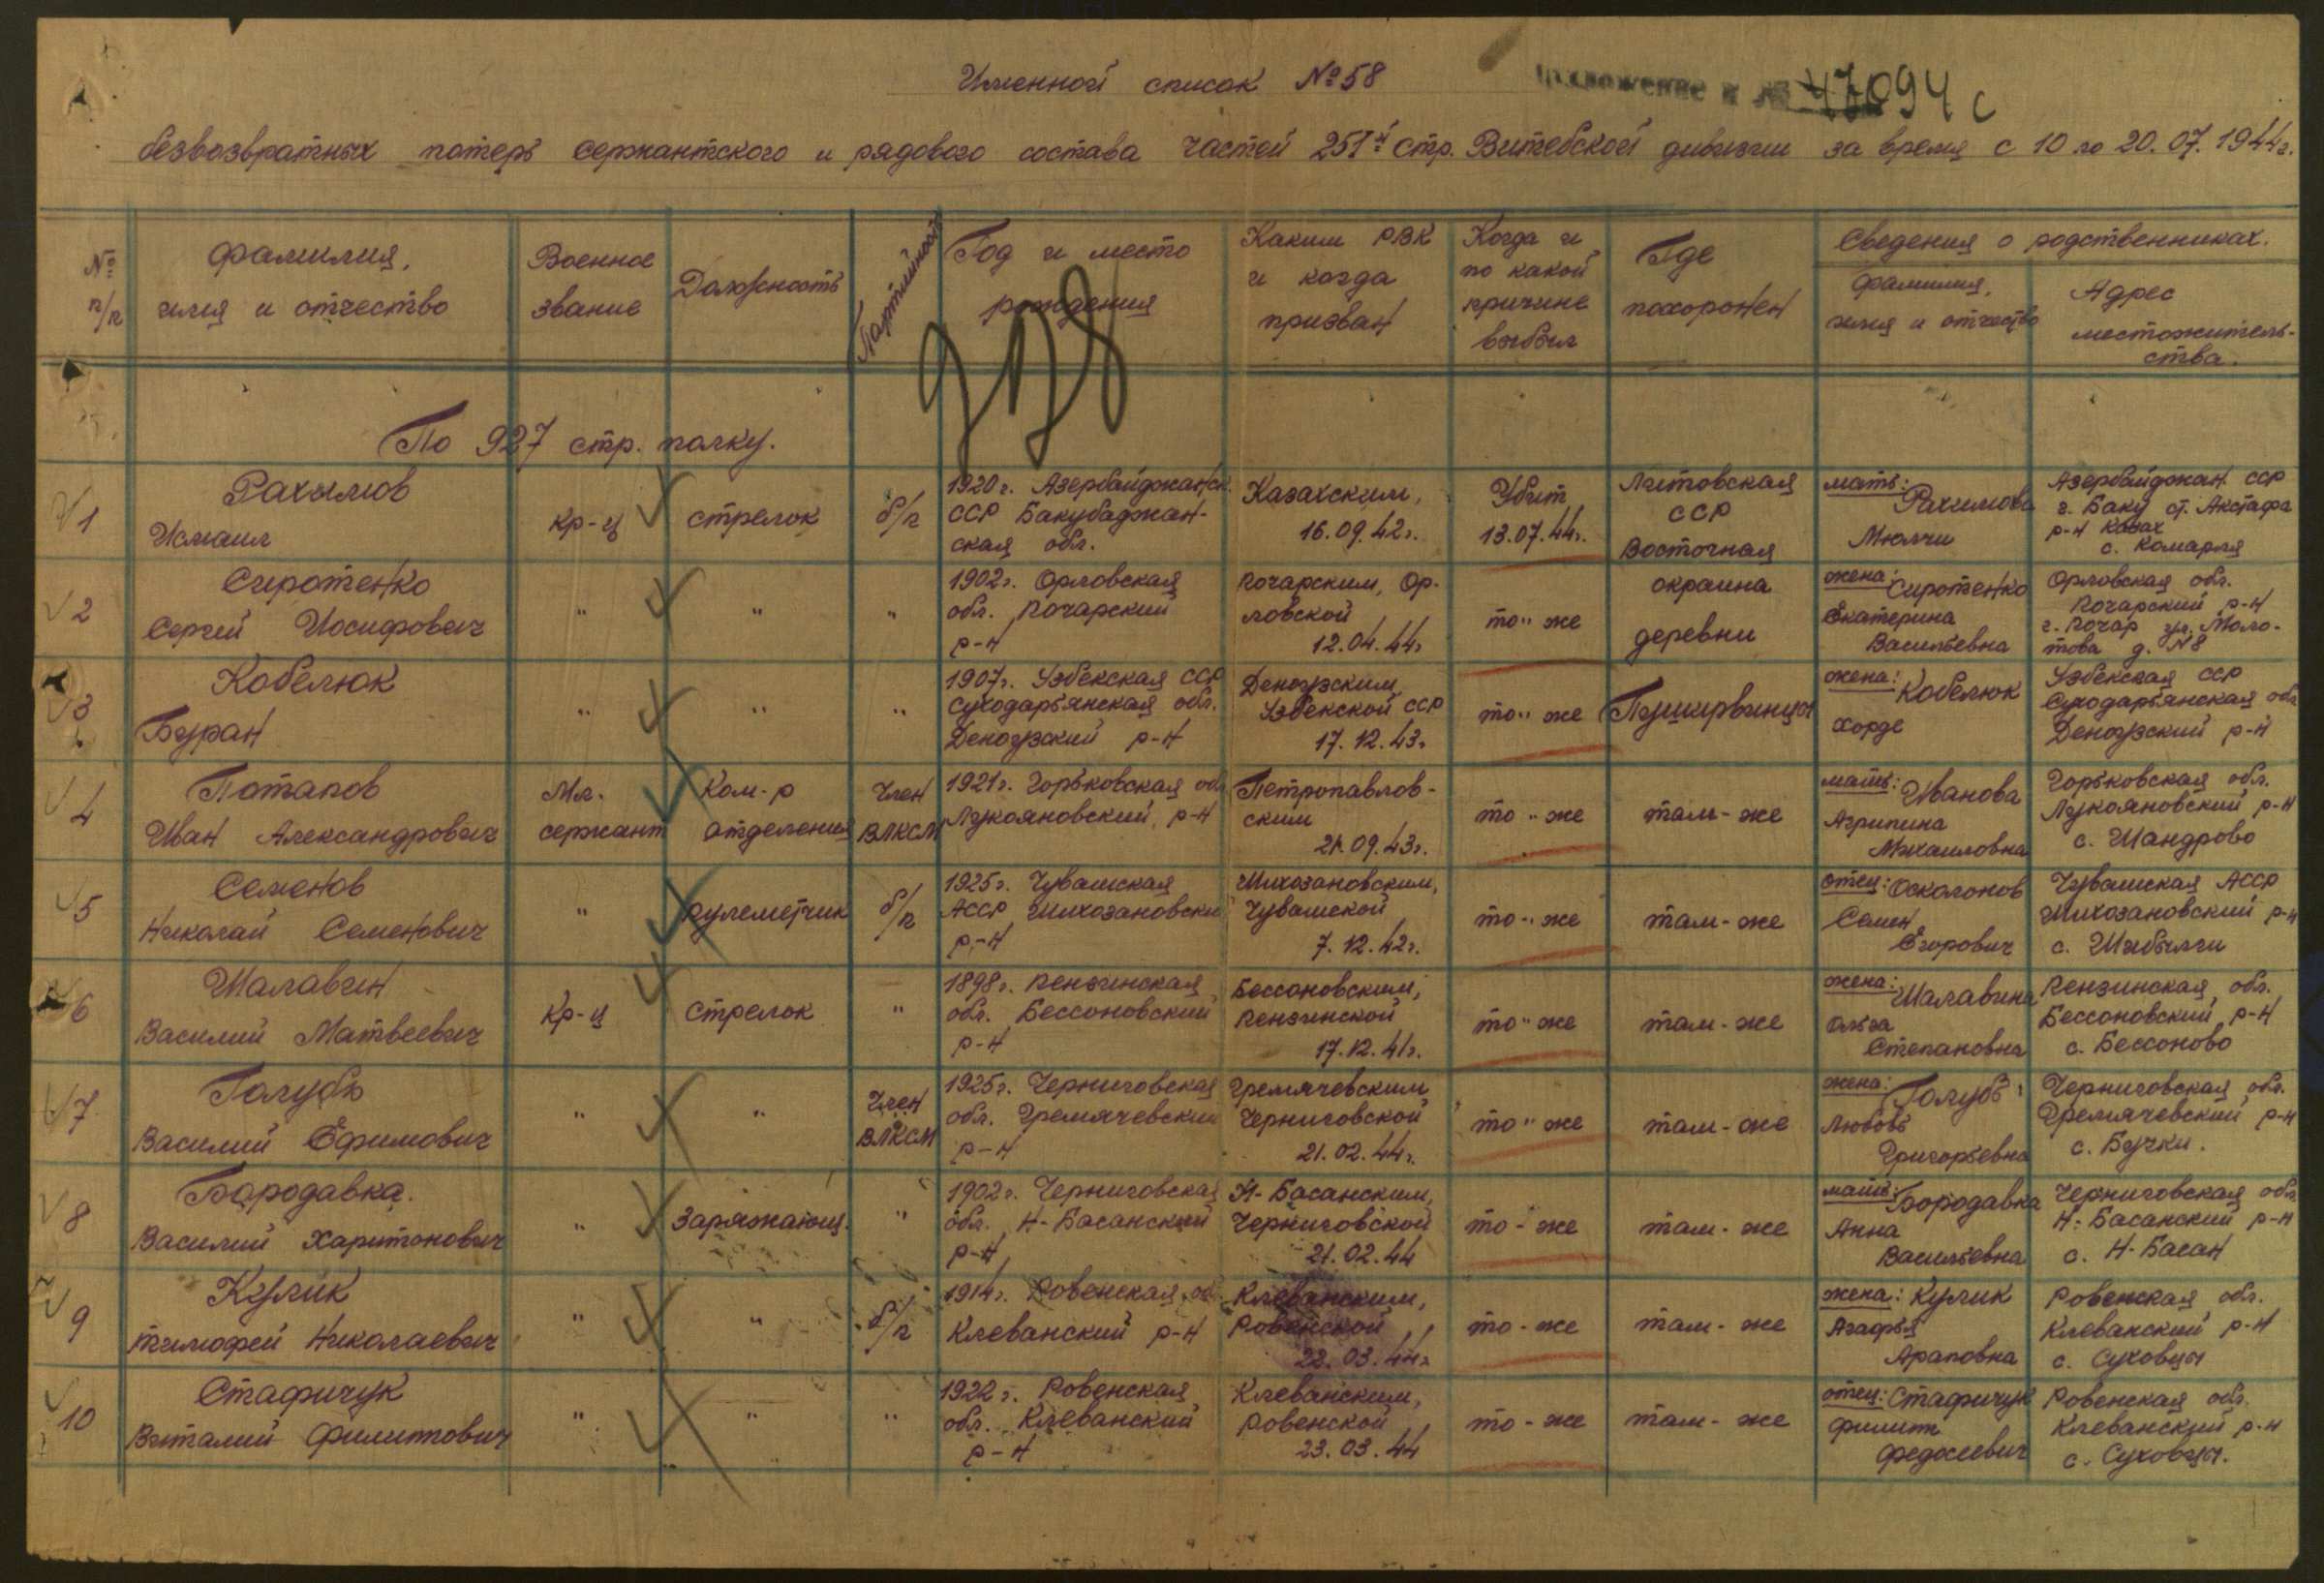 Именной список №58
Приложение к № 47094 с
безвозвратных потерь сержантского и рядового состава частей 251й стр. Витебской дивизии за время с 10 по 20.07.1944г.
№ п/п
фамилия, имя и отчество
Военное звание
Должность
Партийность
Год и место рождения
Каким РВК и когда призван
Когда и по какой причине выбыл
Где похоронен
Сведения о родственниках.
фамилия, имя и отчество
Адрес местожитель-ства.
По 927 стр. полку.
1 Рахымов Исмаил
кр-ц
стрелок
б/п
1920г. Азербайджанск. ССР Бакубаджан-ская обл.
Казахским, 16.09.42г.
Убит 13.07.44г.
Литовская ССР Восточная
мать: Рахимова Мюлчи
Азербайджан ССР г. Баку ст. Акстафа р-н Казах с. Комарля
2 Сиротенко Сергей Иосифович
"
"
"
1902г. Орловская обл. Почарский р-н
Почарским, Ор-ловской 12.04.44г
то" же
окраина деревни
жена: Сиротенко Екатерина Васильевна
Орловская обл. Почарский р-н г. Почар ул. Моло-това д. №8
3 Кобелюк Буран
"
"
"
1907г. Узбекская ССР Суходарьянская обл. Деноузский р-н
Деноузским Узбекской ССР 17.12.43г
то" же
Пуширвинцы
жена: Кобелюк Хорде
Узбекская ССР Суходарьянская обл Деноузский р-н
4 Потапов Иван Александрович
Мл. сержант
Ком-р отделения
Член ВЛКСМ
1921г. Горьковская обл Лукояновский р-н
Петропавлов-ским 21.09.43г.
то" же
там-же
мать: Иванова Агрипина Михаиловна
Горьковская обл. Лукояновский р-н с. Шандрово
5 Семенов Николай Семенович
"
пулеметчик
б/п
1925г. Чувашская АССР Шихозановски р-н
Шихозановским, Чувашской 7.12.42г.
то" же
там-же
отец: Осколонов Семен Егорович
Чувашская АССР Шихозановский р-н с. Шибылги
6 Шалавин Василий Матвеевич
Кр-ц
стрелок
"
1898г. Пензинская обл. Бессоновский р-н
Бессоновским, Пензинской 17.12.41г.
то" же
там-же
жена: Шалавина Ольга Степановна
Пензинская обл. Бессоновский р-н с. Бессоново
7 Голубь Василий Ефимович
"
"
Член ВЛКСМ
1925г. Черниговская обл. Гремячевский р-н
Гремячевским Черниговской 21.02.44г.
то" же
там-же
жена: Голубь Любовь Григорьевна
Черниговская обл. Гремячевский р-н с. Бучки.
8 Бородавка. Василий Харитонович
"
Заряжающ.
"
1902г. Черниговская обл. Н-Басанский р-н
Н-Басанским, Черниговской 21.02.44
то-же
там-же
мать: Бородавка Анна Васильевна
Черниговская обл Н-Басанский р-н с. Н-Басан
9 Кулик Тимофей Николаевич
"
"
б/п
1914г. Ровенская об. Клеванский р-н
Клеванским, Ровенской 22.03.44г
то-же
там-же
жена: Кулик Агафья Араповна
Ровенская обл. Клеванский р-н с. Суховцы
10 Стафичук Виталий Филиппович
"
"
"
1922г. Ровенская обл. Клеванский р-н
Клеванским, Ровенской 23.03.44
то-же
там-же
отец: Стафичук Филипп Федосеевич
Ровенская обл. Клеванский р-н с. Суховцы.